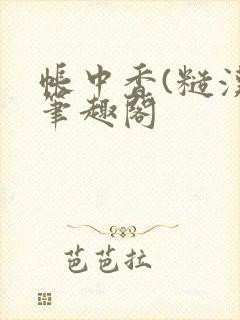 帳中香(糙漢
筆趣閣
芭芭拉